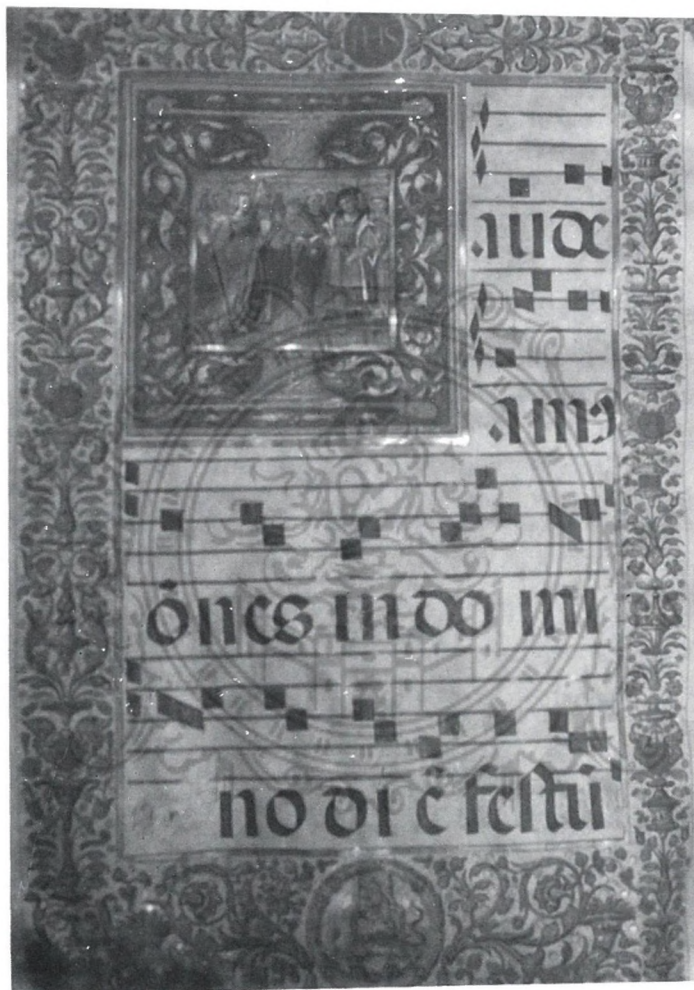 IHS
aude
amꝰ
ōnes in do mi
no di ē festū